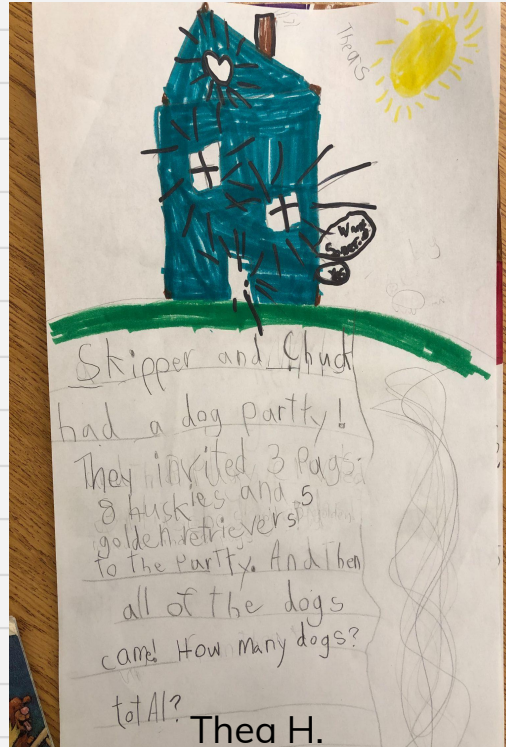 Theas
Skipper and Chuck
had a dog partty!
They invited 3 Pugs,
8 Huskies and 5
golden retrievers
to the Partty. And Then
all of the dogs
came! How many dogs?
totAl?
Thea H.